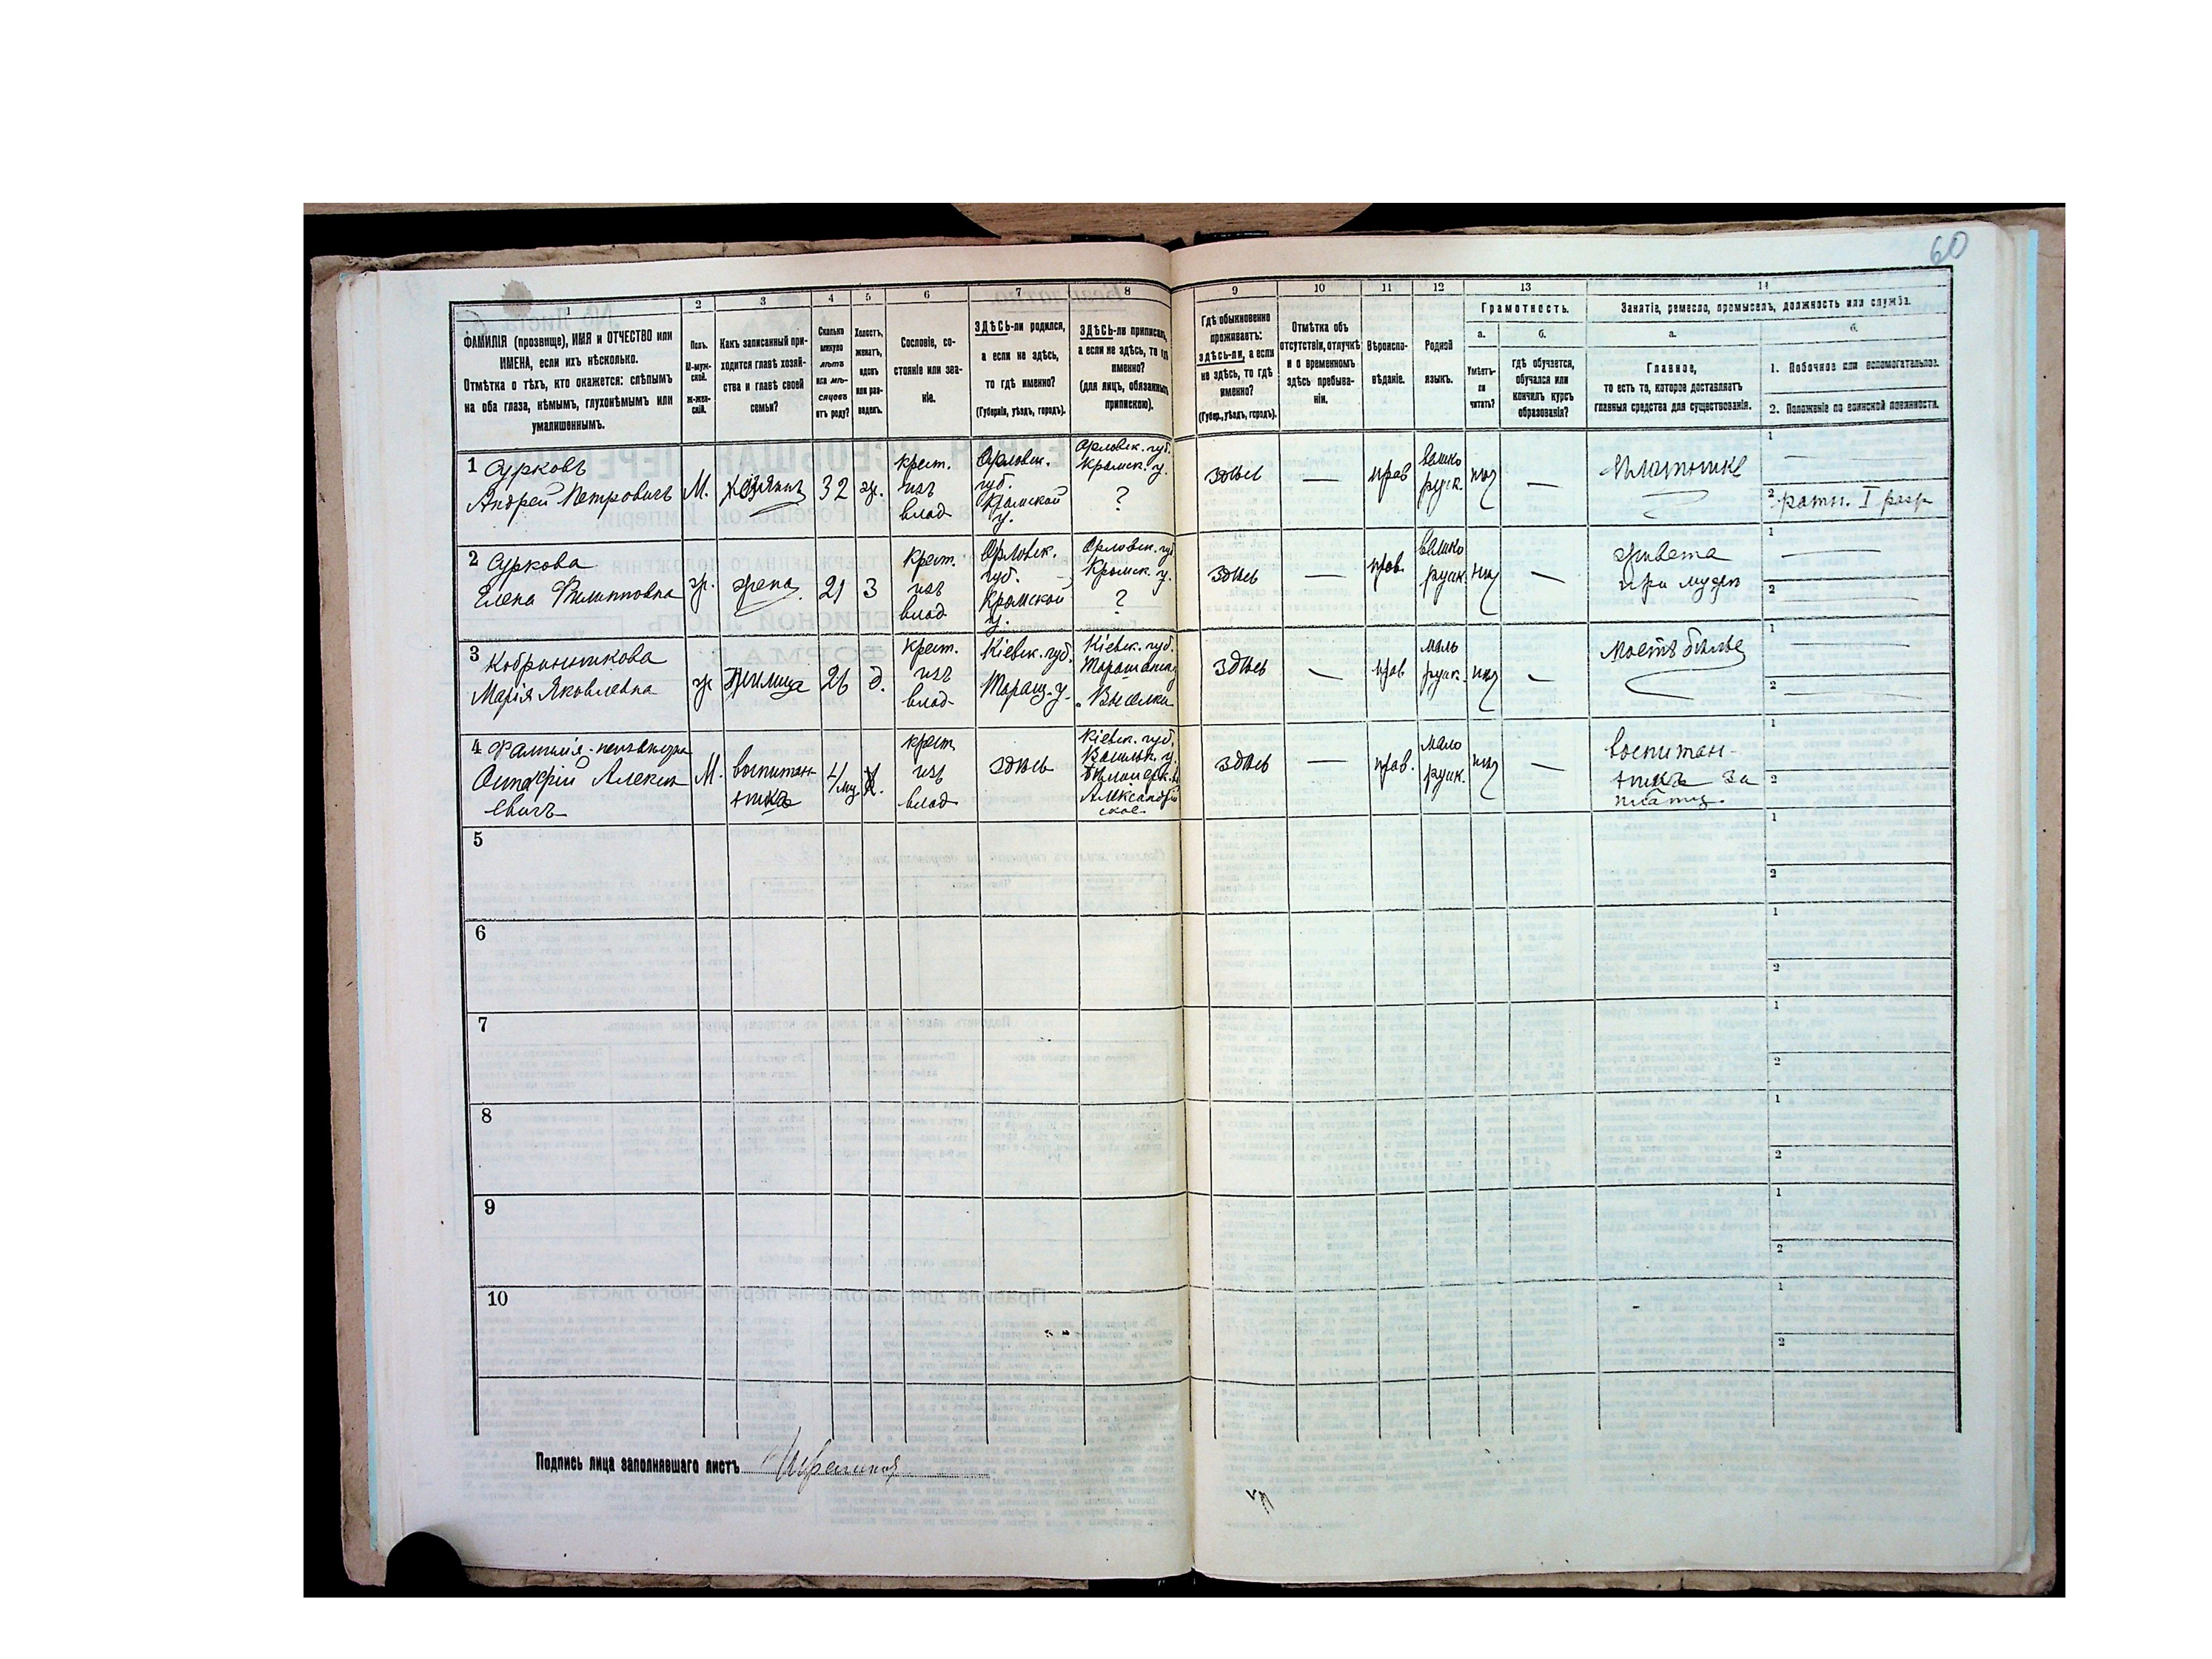 60
1
2
3
4
5
6
7
8
9
10
11
12
13
14
ФАМИЛІЯ (прозвище), ИМЯ и ОТЧЕСТВО или
ИМЕНА, если ихъ нѣсколько.
Отмѣтка о тѣхъ, кто окажется: слѣпымъ
на оба глаза, нѣмымъ, глухонѣмымъ или
умалишеннымъ.
Полъ.
М-муж-
ской.
Ж-жен-
скій.
Какъ записанный при-
ходится главѣ хозяй-
ства и главѣ своей
семьи?
Сколько
минуло
лѣтъ
или мѣ-
сяцевъ
отъ роду?
Холостъ,
женатъ,
вдовъ
или раз-
веденъ.
Сословіе, со-
стояніе или зва-
ніе.
ЗДѢСЬ-ли родился,
а если не здѣсь,
то гдѣ именно?
(Губернія, уѣздъ, городъ).
ЗДѢСЬ-ли приписанъ,
а если не здѣсь, то гдѣ
именно?
(для лицъ, обязанныхъ
припискою).
Гдѣ обыкновенно
проживаетъ:
здѣсь-ли, а если
не здѣсь, то гдѣ
именно?
(Губер., уѣздъ, городъ).
Отмѣтка объ
отсутствіи, отлучкѣ
и о временномъ
здѣсь пребыва-
ніи.
Вѣроиспо-
вѣданіе.
Родной
языкъ.
Грамотность.
а.
Умѣетъ-
ли
читать?
б.
гдѣ обучается,
обучался или
кончилъ курсъ
образованія?
Занятіе, ремесло, промыселъ, должность или служба.
а.
Главное,
то есть то, которое доставляетъ
главныя средства для существованія.
б.
1. Побочное или вспомогательное.
2. Положеніе по воинской повинности.
1 Сурковъ
Андрей Петровичъ
М.
хозяинъ
32
ж.
крест.
изъ
влад.
Орловск.
губ.
Кромской
у.
Орловск. губ.
Кромск. у.
?
здѣсь
—
прав
велико
русск.
—
1
2 ратн. I разр
2 Суркова
Елена Филипповна
ж.
жена
21
З
крест.
изъ
влад
Орловск.
губ.
Кромской
у.
Орловск. губ
Кромск. у.
?
здѣсь
—
прав.
велико
русск.
—
живетъ
при мужѣ
1
2
3
Марія Яковлевна
ж
26
д.
крест.
изъ
влад.
Кіевск. губ.
Таращ. у.
Кіевск. губ.
здѣсь
—
прав
мало
русск.
—
моетъ бѣлье
1
2
4
М.
воспитан-
никъ
крест
изъ
влад
здѣсь
Кіевск. губ.
Васильк. у.
Александрій
ское
здѣсь
—
прав.
мало
русск.
—
воспитан-
никъ за
плату.
1
2
5
1
2
6
1
2
7
1
2
8
1
2
9
1
2
10
1
2
Подпись лица заполнявшаго листъ